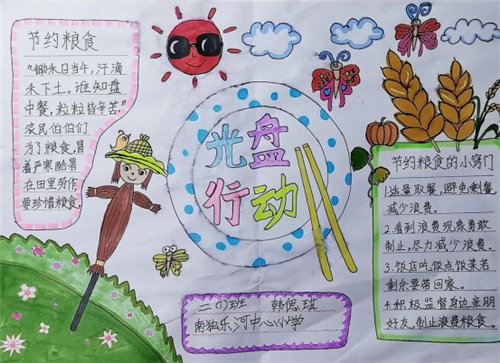 节约粮食
“锄禾日当午，汗滴
禾下土。谁知盘
中餐，粒粒皆辛苦。”
农民伯伯们
为了粮食，冒
着严寒酷暑
在田里劳作，
要珍惜粮食。
光盘
行动
节约粮食的小窍门
1.适量取餐，避免剩餐，
减少浪费。
2.看到浪费现象勇敢
制止，尽力减少浪费。
3.饭店吃饭点饭菜若
剩余要带回家。
4.积极监督身边亲朋
好友，制止浪费粮食。
二(1)班 韩偲琪
南独乐河中心小学